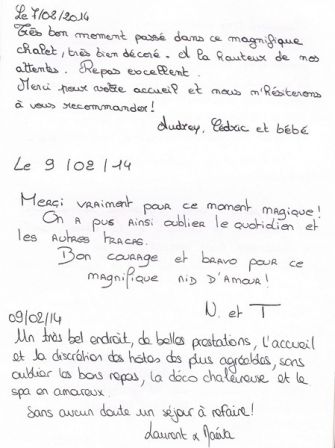 Le 7/02/2014
Très bon moment passé dans ce magnifique
chalet, très bien décoré. A la hauteur de nos
attentes. Repas excellent.
Merci pour votre accueil et nous n'hésiterons
à vous recommander!
Audrey, Cédric et bébé
Le 9/02/14
Merci vraiment pour ce moment magique!
On a pus ainsi oublier le quotidien et
les autres tracas.
Bon courage et bravo pour ce
magnifique nid d'amour!
N. et T
09/02/14
Un très bel endroit, de belles prestations, l'accueil
et la discrétion des hotes des plus agréables, sans
oublier les bons repas, la déco chaleureuse et le
spa en amoureux.
Sans aucun doute un séjour à refaire!
Laurent &